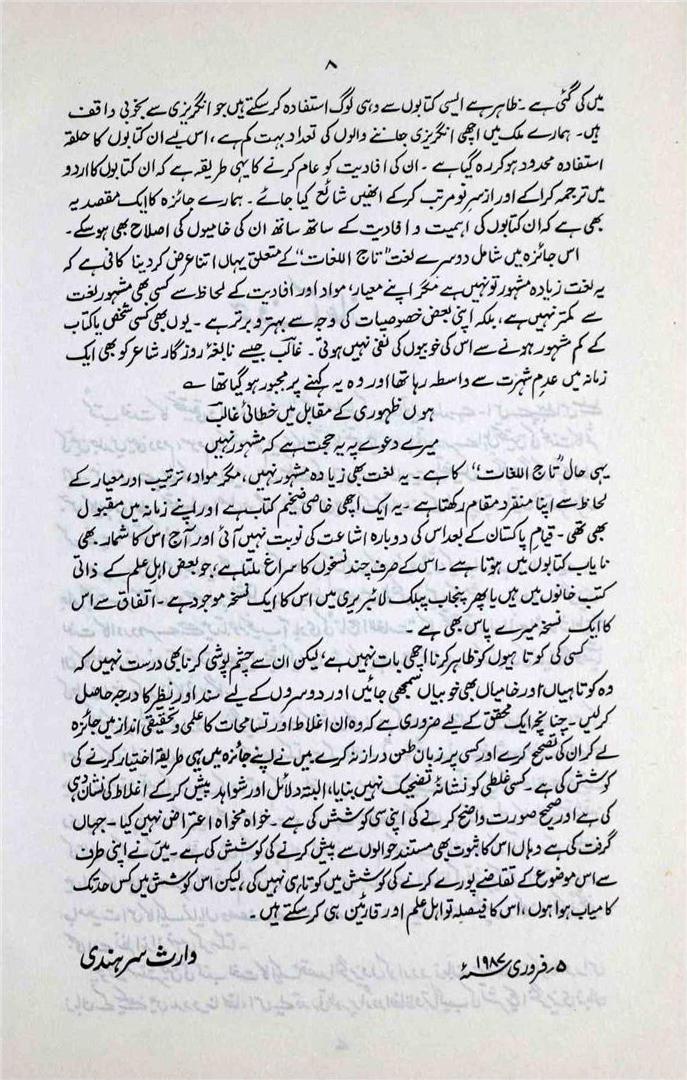 ۸
میں کی گئی ہے ۔ ظاہر ہے ایسی کتابوں سے وہی لوگ استفادہ کر سکتے ہیں جو انگریزی سے بخوبی واقف
ہیں۔ ہمارے ملک میں اچھی انگریزی جاننے والوں کی تعداد بہت کم ہے، اس لیے ان کتابوں کا حلقہ
استفادہ محدود ہو کر رہ گیا ہے ۔ ان کی افادیت کو عام کرنے کا یہی طریقہ ہے کہ ان کتابوں کا اردو
میں ترجمہ کرا کے اور از سرِ نو مرتب کر کے انھیں شائع کیا جائے ۔ ہمارے جائزہ کا ایک مقصد یہ
بھی ہے کہ ان کتابوں کی اہمیت و افادیت کے ساتھ ساتھ ان کی خامیوں کی اصلاح بھی ہو سکے۔
اس جائزہ میں شامل دوسرے لغت "تاج اللغات" کے متعلق یہاں اتنا عرض کر دینا کافی ہے کہ
یہ لغت زیادہ مشہور تو نہیں ہے مگر اپنے معیار، مواد اور افادیت کے لحاظ سے کسی بھی مشہور لغت
سے کمتر نہیں ہے، بلکہ اپنی بعض خصوصیات کی وجہ سے بہتر و برتر ہے ۔ یوں بھی کسی شخص یا کتاب
کے کم مشہور ہونے سے اس کی خوبیوں کی نفی نہیں ہوتی ۔ غالبؔ جیسے نابغۂ روزگار شاعر کو بھی ایک
زمانہ میں عدمِ شہرت سے واسطہ رہا تھا اور وہ یہ کہنے پر مجبور ہو گیا تھا ؎
ہوں ظہوری کے مقابل میں خفائی غالبؔ
میرے دعوے پہ یہ حجت ہے کہ مشہور نہیں
یہی حال "تاج اللغات" کا ہے ۔ یہ لغت بھی زیادہ مشہور نہیں، مگر مواد، ترتیب اور معیار کے
لحاظ سے اپنا منفرد مقام رکھتا ہے ۔ یہ ایک اچھی خاصی ضخیم کتاب ہے اور اپنے زمانہ میں مقبول
بھی تھی ۔ قیامِ پاکستان کے بعد اس کی دوبارہ اشاعت کی نوبت نہیں آئی اور آج اس کا شمار بھی
نایاب کتابوں میں ہوتا ہے ۔ اس کے صرف چند نسخوں کا سراغ ملتا ہے، جو بعض اہلِ علم کے ذاتی
کتب خانوں میں ہیں یا پھر پنجاب پبلک لائبریری میں اس کا ایک نسخہ موجود ہے ۔ اتفاق سے اس
کا ایک نسخہ میرے پاس بھی ہے ۔
کسی کی کوتاہیوں کو ظاہر کرنا اچھی بات نہیں ہے، لیکن ان سے چشم پوشی کرنا بھی درست نہیں کہ
وہ کوتاہیاں اور خامیاں بھی خوبیاں سمجھی جائیں اور دوسروں کے لیے سند اور نظیر کا درجہ حاصل
کر لیں ۔ چنانچہ ایک محقق کے لیے ضروری ہے کہ وہ ان اغلاط اور تسامحات کا علمی و تحقیقی انداز میں جائزہ
لے کر ان کی تصحیح کرے اور کسی پر زبانِ طعن دراز نہ کرے میں نے اپنے جائزہ میں یہی طریقہ اختیار کرنے کی
کوشش کی ہے ۔ کسی غلطی کو نشانۂ تضحیک نہیں بنایا، البتہ دلائل اور شواہد پیش کر کے اغلاط کی نشان دہی
کی ہے اور صحیح صورت واضح کرنے کی اپنی سی کوشش کی ہے ۔ خواہ مخواہ اعتراض نہیں کیا ۔ جہاں
گرفت کی ہے وہاں اس کا ثبوت بھی مستند حوالوں سے پیش کرنے کی کوشش کی ہے ۔ میں نے اپنی طرف
سے اس موضوع کے تقاضے پورے کرنے کی کوشش میں کوتاہی نہیں کی، لیکن اس کوشش میں کس حد تک
کامیاب ہوا ہوں، اس کا فیصلہ تو اہلِ علم اور قارئین ہی کر سکتے ہیں ۔
۵ ؍ فروری ۱۹۸۷ء
وارث سرہندی